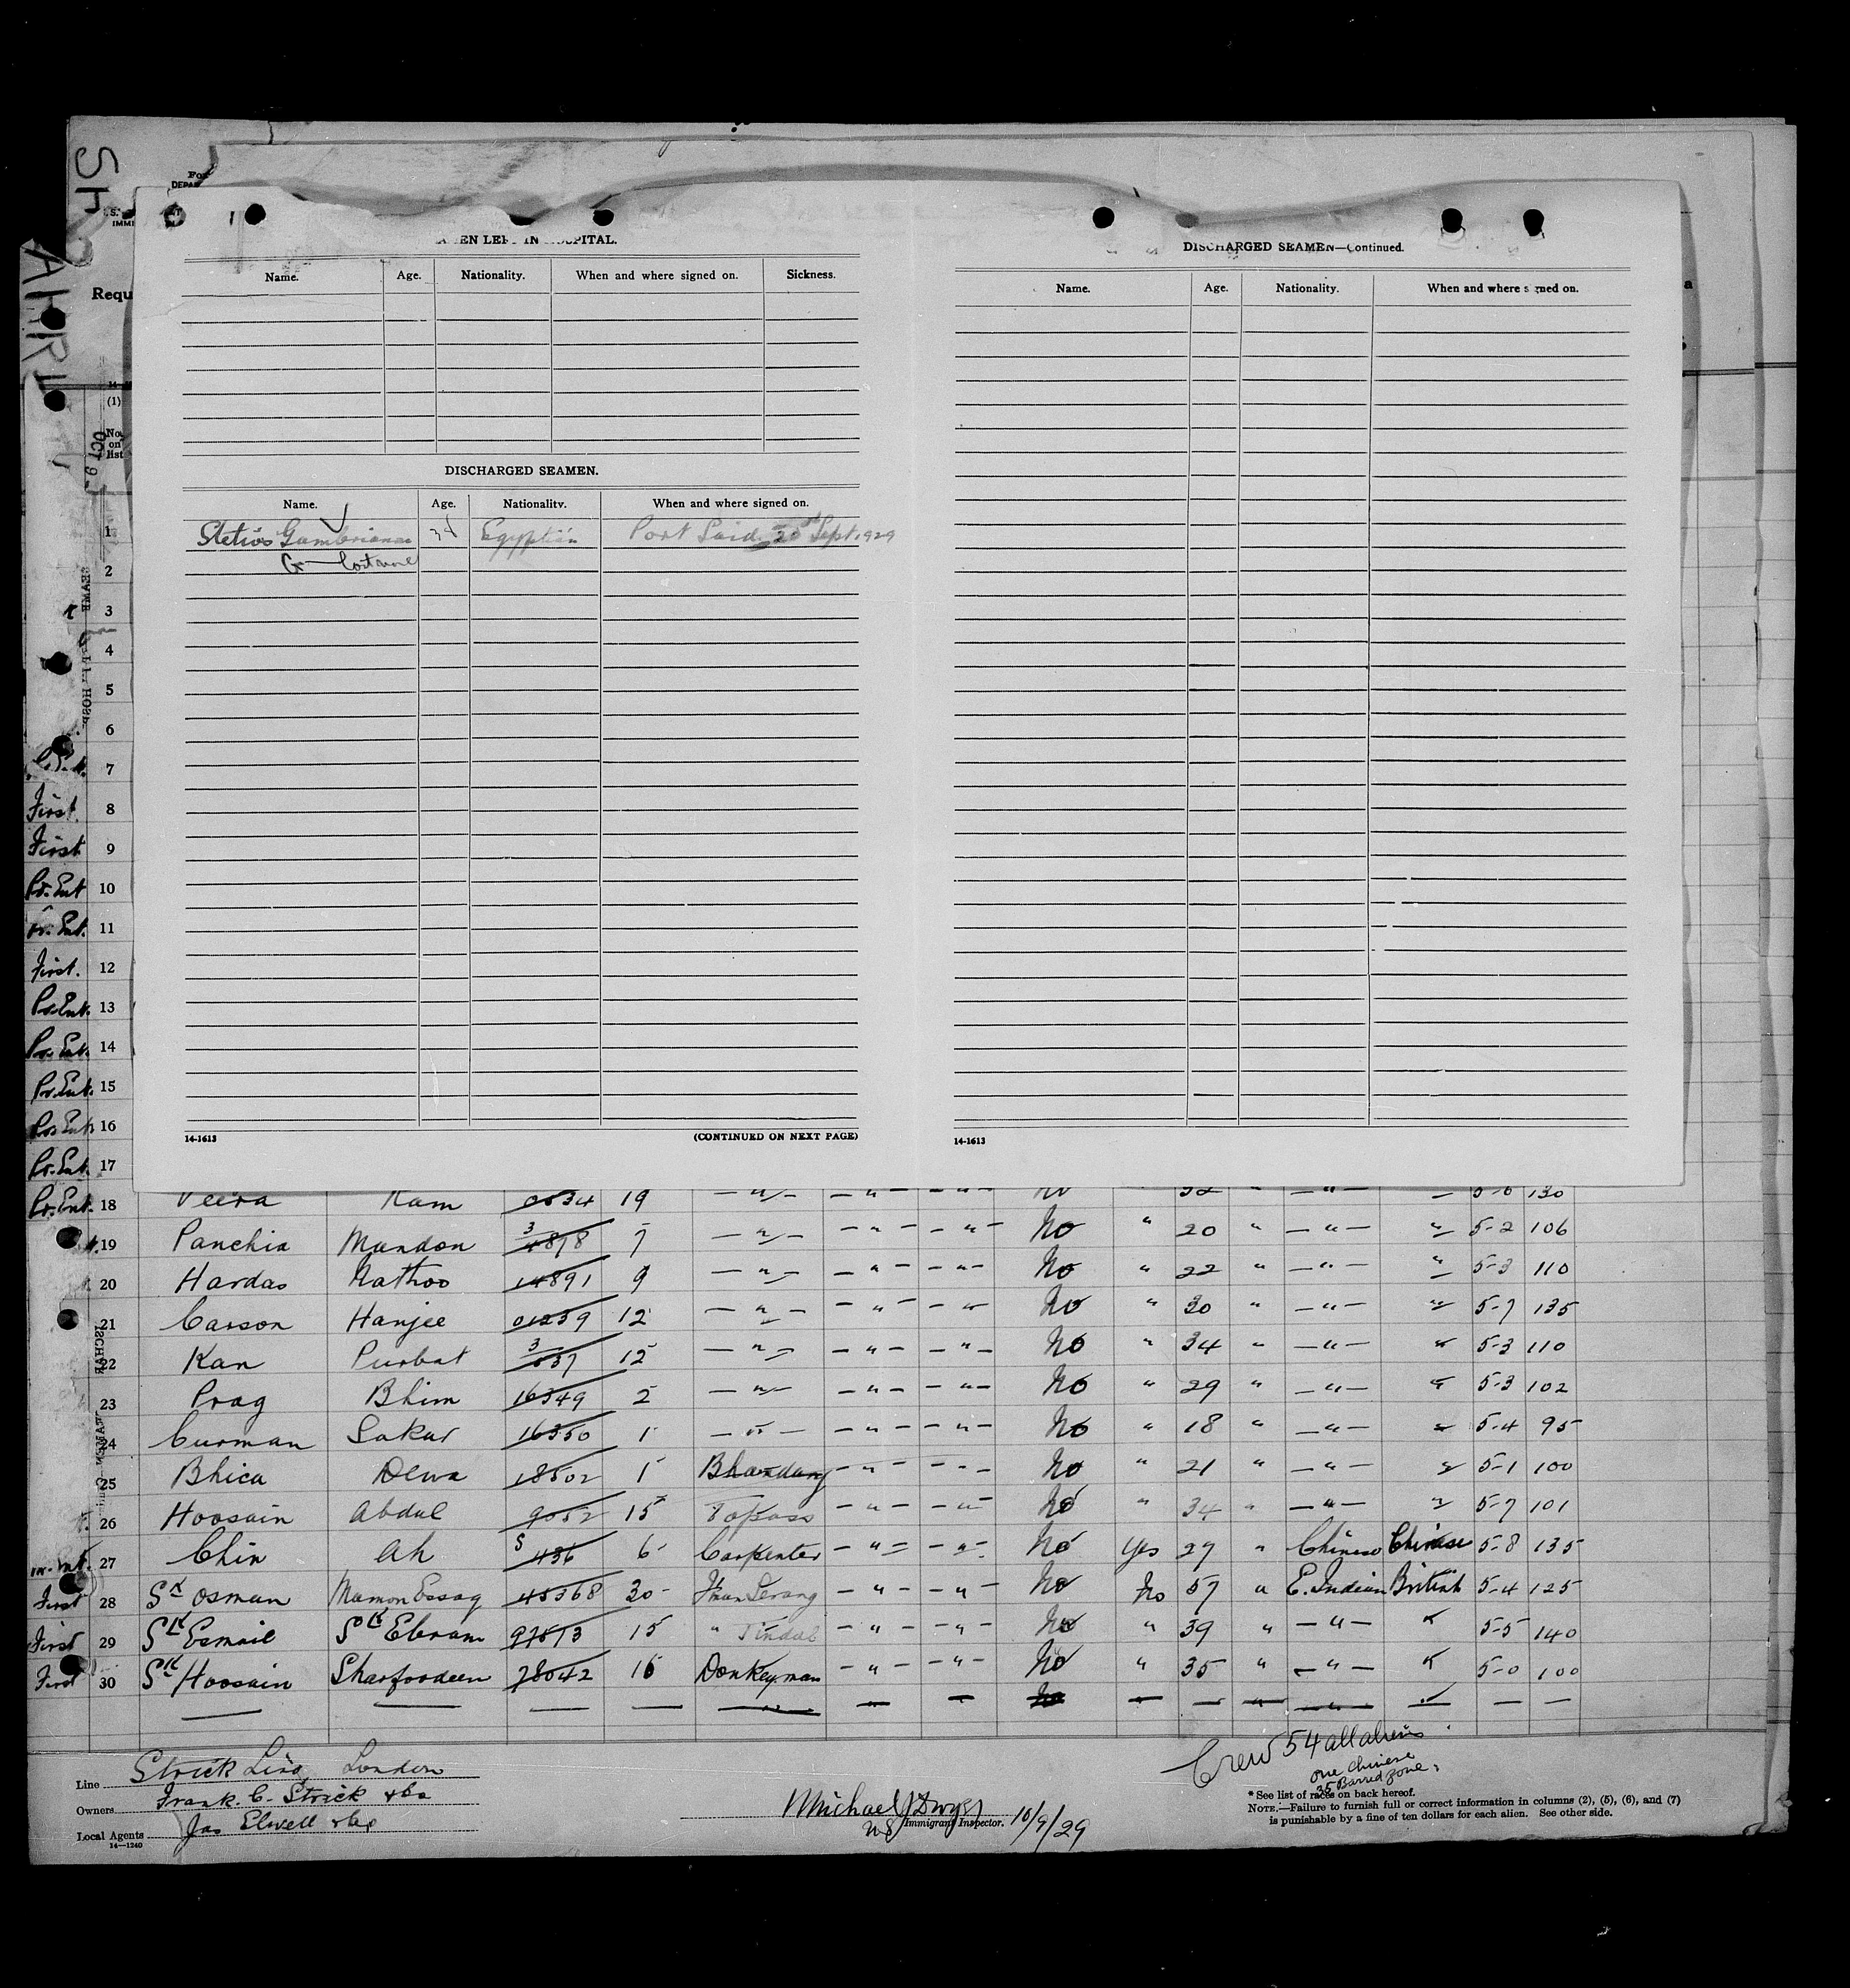 SEAMEN LEFT IN HOSPITAL.
Name. Age. Nationality. When and where signed on. Sickness.
DISCHARGED SEAMEN.
Name. Age. Nationality. When and where signed on.
Egyptian Port Said Sept. 1929
14-1613 (CONTINUED ON NEXT PAGE)
DISCHARGED SEAMEN—Continued.
Name. Age. Nationality. When and where signed on.
14-1613
Requ
(1)
No. on list
OCT 9
1
2
3
4
5
6
7
First 8
First 9
Pr. Ent 10
Pr. Ent. 11
First. 12
Pr. Ent. 13
Pr. Ent. 14
Pr. Ent. 15
Pr. Ent. 16
Pr. Ent. 17
Pr. Ent. 18 Veera Ram 19 130
19 Panchia Mandon 7 — " — — " — — " — No " 20 " — " — " 5-2 106
20 Hardas Nathoo 14891 9 — " — — " — — " — No " 22 " — " — " 5-3 110
21 Carson Hanjee 01239 12 — " — — " — — " — No " 30 " — " — " 5-7 135
22 Kan Purbat 12 — " — — " — — " — No " 34 " — " — " 5-3 110
23 Prag Bhim 16349 2 — " — — " — — " — No " 29 " — " — " 5-3 102
24 Curman Lakar 16350 1 — " — — " — — " — No " 18 " — " — " 5-4 95
25 Bhica Dewa 18502 1 Bhandary — " — — " — No " 21 " — " — " 5-1 100
26 Hoosain Abdul 9052 15 Topass — " — — " — No " 34 " — " — " 5-7 101
27 Chin Ah 6 Carpenter — " — — " — No Yes 29 " Chinese Chinese 5-8 135
First 28 Sk Osman Mamon Essag 45368 30 Serang — " — — " — No No 57 " E. Indian British 5-4 125
First 29 Sk Esmail Sk Ebram 97573 15 " Tindal — " — — " — No " 39 " — " — " 5-5 140
First 30 Sk Hoosain Sharfoodeen 78042 16 Donkeyman — " — — " — No " 35 " — " — " 5-0 100
Crew 54 all aliens
one Chinese
35 Barred zone.
Line Strick Line, London
Owners Frank. C. Strick & Co
Local Agents Jas Elwell & Co
14—1240
Michael J Dwyer
Immigrant Inspector. 10/9/29
* See list of races on back hereof.
NOTE.—Failure to furnish full or correct information in columns (2), (5), (6), and (7)
is punishable by a fine of ten dollars for each alien. See other side.